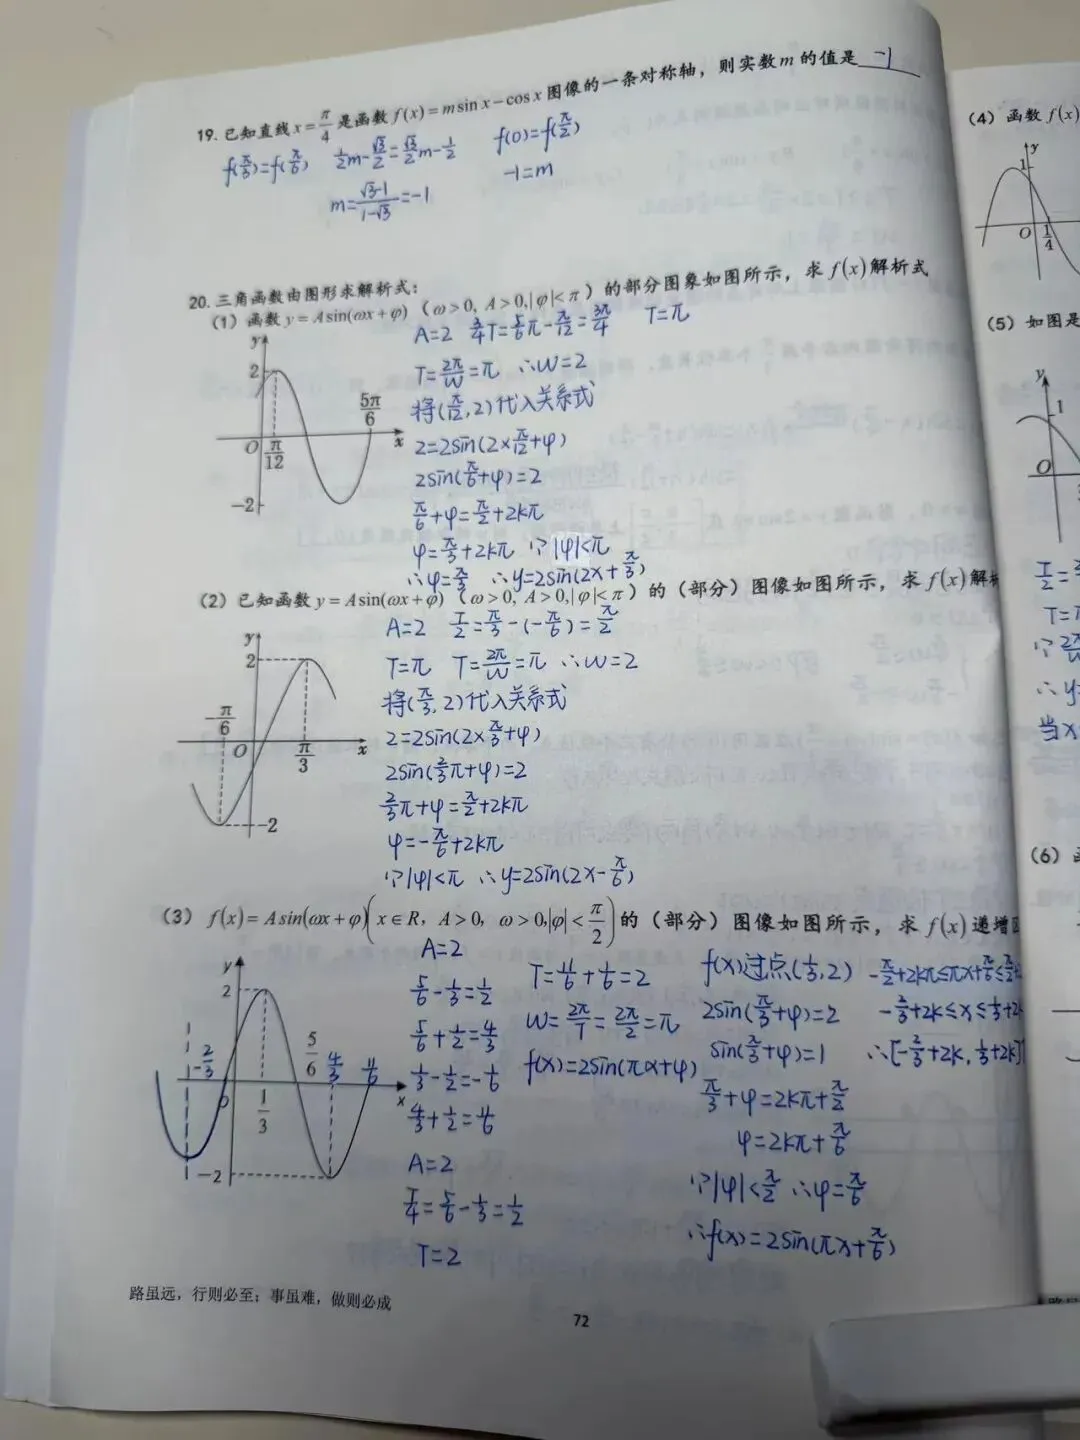 19. 已知直线x=π/4是函数f(x)=m sin x−cos x图像的一条对称轴，则实数m的值是 -1
f(π/3)=f(π/6) 1/2m-√3/2=√3/2m-1/2 f(0)=f(π/2)
m=(√3-1)/(1-√3)=-1 -1=m
20. 三角函数由图形求解析式：
(1) 函数y=Asin(ωx+φ)（ω>0, A>0,|φ|<π）的部分图象如图所示，求f(x)解析式
A=2 3/4T=5/6π-π/12=3π/4 T=π
T=2π/W=π ∴W=2
将(π/12,2)代入关系式
2=2sin(2×π/12+φ)
2sin(π/6+φ)=2
π/6+φ=π/2+2kπ
φ=π/3+2kπ ∵|φ|<π
∴φ=π/3 ∴y=2sin(2x+π/3)
y
2
5π/6
O π/12 x
-2
(2) 已知函数y=Asin(ωx+φ)（ω>0, A>0,|φ|<π）的（部分）图像如图所示，求f(x)解析
A=2 T/2=π/3-(-π/6)=π/2
T=π T=2π/W=π ∴W=2
将(π/3,2)代入关系式
2=2sin(2×π/3+φ)
2sin(2/3π+φ)=2
2/3π+φ=π/2+2kπ
φ=-π/6+2kπ
∵|φ|<π ∴y=2sin(2x-π/6)
y
2
-π/6
O π/3 x
-2
(3) f(x)=Asin(ωx+φ)(x∈R，A>0，ω>0,|φ|<π/2)的（部分）图像如图所示，求f(x)递增
A=2
5/6-1/3=1/2
5/6+1/2=4/3
1/3-1/2=-1/6
4/3+1/2=11/6
A=2
T/4=5/6-1/3=1/2
T=2
T=11/6+1/6=2
W=2π/T=2π/2=π
f(x)=2sin(πx+φ)
f(x)过点(1/3,2)
2sin(π/3+φ)=2
sin(π/3+φ)=1
π/3+φ=2kπ+π/2
φ=2kπ+π/6
∵|φ|<π/2 ∴φ=π/6
∴f(x)=2sin(πx+π/6)
-π/2+2kπ≤πx+π/6≤π/2
-2/3+2k≤x≤1/3+2k
∴[-2/3+2k,1/3+2k]
y
2
-2/3 5/6 4/3 11/6
O 1/3 x
-2
路虽远，行则必至；事虽难，做则必成
72
(4) 函数f(x)
y
1
O 1/4
(5) 如图是
y
1
O
T=π
∴y
当x
(6)